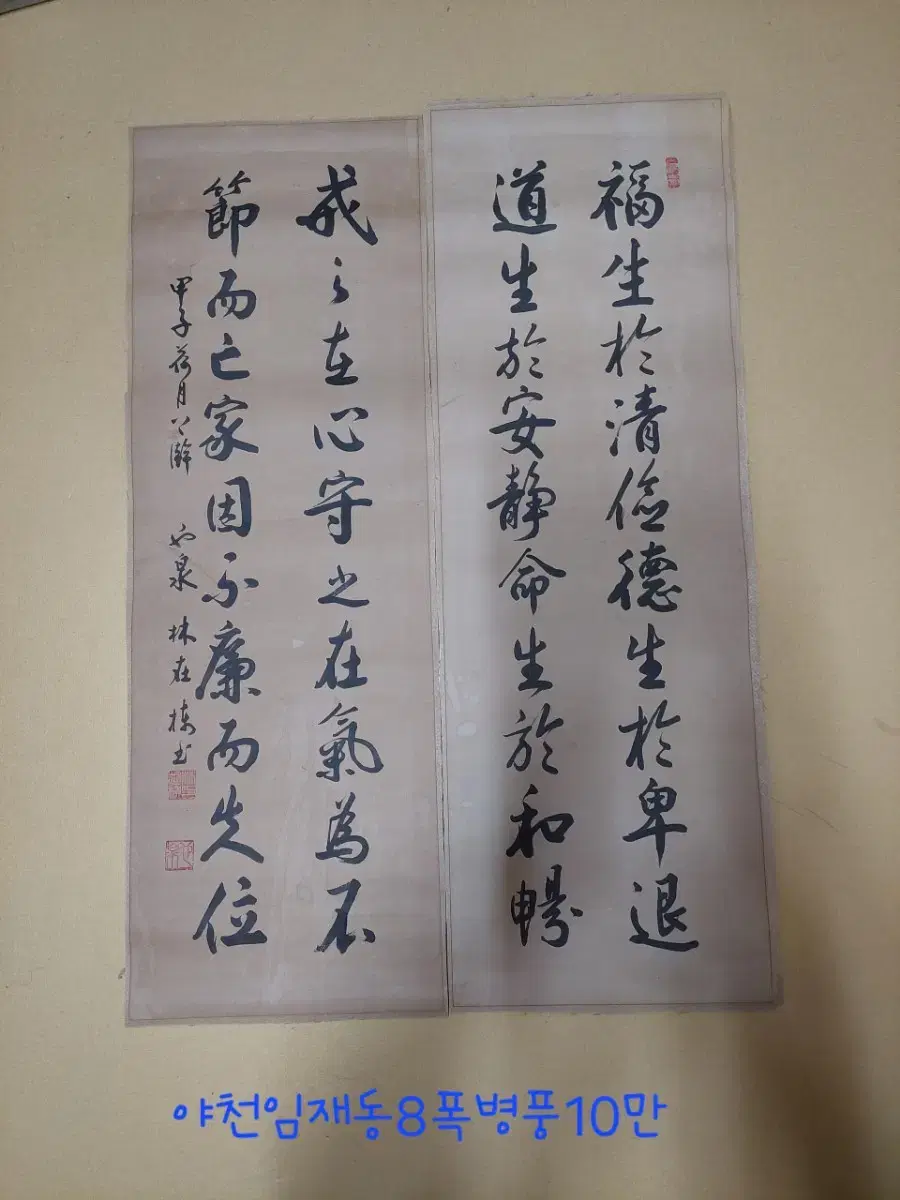 福生於清儉德生於卑退
道生於安靜命生於和暢
戒之在心守之在氣為不
節而亡家因不廉而失位
甲子荷月澣 也泉 林在棟書
야천임재동8폭병풍10만